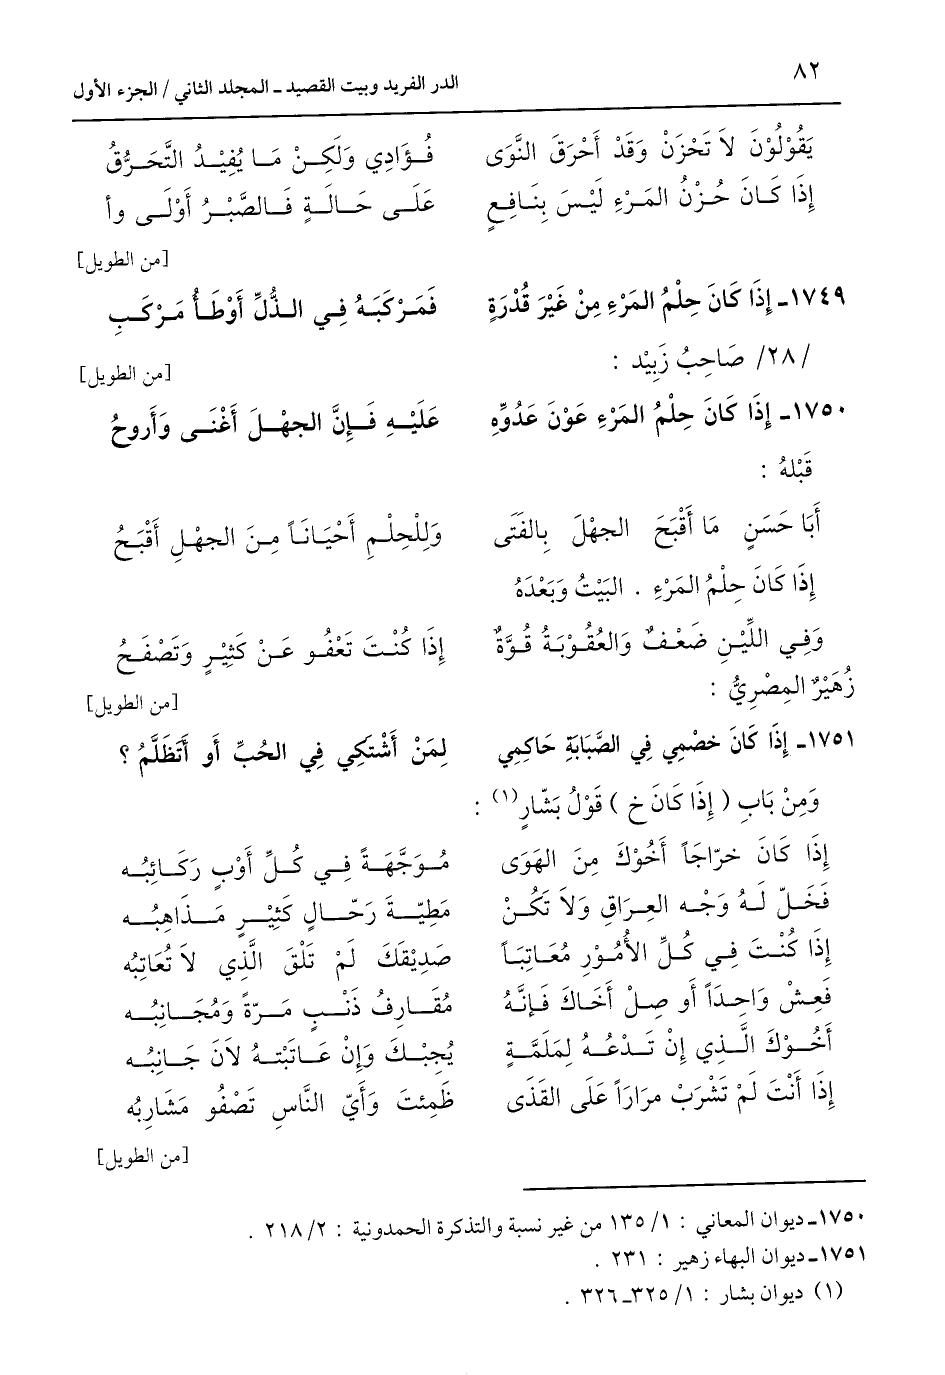 ٨٢
الدر الفريد وبيت القصيد ـ المجلد الثاني / الجزء الأول
يَقُوْلُوْنَ لاَ تَحْزَنْ وَقَدْ أَحْرَقَ النَّوَى فُؤَادِي وَلَكِنْ مَا يُفِيْدُ التَّحَرُّقُ
إِذَا كَانَ حُزْنُ المَرْءِ لَيْسَ بِنَافِعٍ عَلَى حَالَةٍ فَالصَّبْرُ أَوْلَى وأ
[من الطويل]
١٧٤٩ـ إِذَا كَانَ حِلْمُ المَرْءِ مِنْ غَيْرَ قُدْرَةٍ فَمَرْكَبَهُ فِي الذُّلِّ أَوْطَأُ مَرْكَبِ
/٢٨/ صَاحِبُ زَبِيْد :
[من الطويل]
١٧٥٠ـ إِذَا كَانَ حِلْمُ المَرْءِ عَوْنَ عَدُوِّهِ عَلَيْهِ فَإِنَّ الجهْلَ أَغْنَى وَأَروحُ
قَبْلهُ :
أَبَا حَسَنٍ مَا أَقْبَحَ الجهْلَ بِالفَتَى وَلِلْحِلْمِ أَحْيَانَاً مِنَ الجهْلِ أَقْبَحُ
إِذَا كَانَ حِلْمُ المَرْءِ . البَيْتُ وَبَعْدَهُ
وَفِي اللِّيْنِ ضَعْفٌ وَالعُقُوْبَةُ قُوَّةٌ إِذَا كُنْتَ تَعْفُو عَنْ كَثِيْرٍ وَتَصْفَحُ
زُهَيْرٌ المِصْرِيُّ :
[من الطويل]
١٧٥١ـ إِذَا كَانَ خصْمِي فِي الصَّبَابَةِ حَاكِمِي لِمَنْ أَشْتكِي فِي الحُبِّ أو أَتَظَلَّمُ ؟
وَمِنْ بَابِ ( إِذَا كَانَ خ ) قَوْلُ بَشّارٍ(١) :
إِذَا كَانَ خرّاجَاً أَخُوْكَ مِنَ الهَوَى مُوَجَّهَةً فِي كُلِّ أَوْبٍ رَكَائِبُه
فَخَلّ لَهُ وَجْه العِرَاقِ وَلاَ تَكُنْ مَطِيَّةَ رَحّالٍ كَثِيْرٍ مَذاهِبُه
إِذَا كُنْتَ فِي كُلِّ الأُمُوْرِ مُعَاتِبَاً صَدِيْقَكَ لَمْ تَلْقَ الَّذِي لاَ تُعَاتِبُه
فَعِشْ وَاحِداً أو صِلْ أَخَاكَ فَإِنَّهُ مُقَارِفُ ذَنْبٍ مَرّةً وَمُجَانِبُه
أَخُوْكَ الَّذِي إِنْ تَدْعُهُ لِمَلَمَّةٍ يُجِبْكَ وَإِنْ عَاتَبْتهُ لاَنَ جَانِبُه
إِذَا أَنْتَ لَمْ تَشْرَبْ مرَاراً عَلَى القَذَى ظَمِئتَ وَأَيّ النَّاسِ تَصْفُو مَشَارِبُه
[من الطويل]
١٧٥٠ـ ديوان المعاني : ١/ ١٣٥ من غير نسبة والتذكرة الحمدونية : ٢/ ٢١٨ .
١٧٥١ـ ديوان البهاء زهير : ٢٣١ .
(١) ديوان بشار : ١/ ٣٢٥ـ ٣٢٦ .